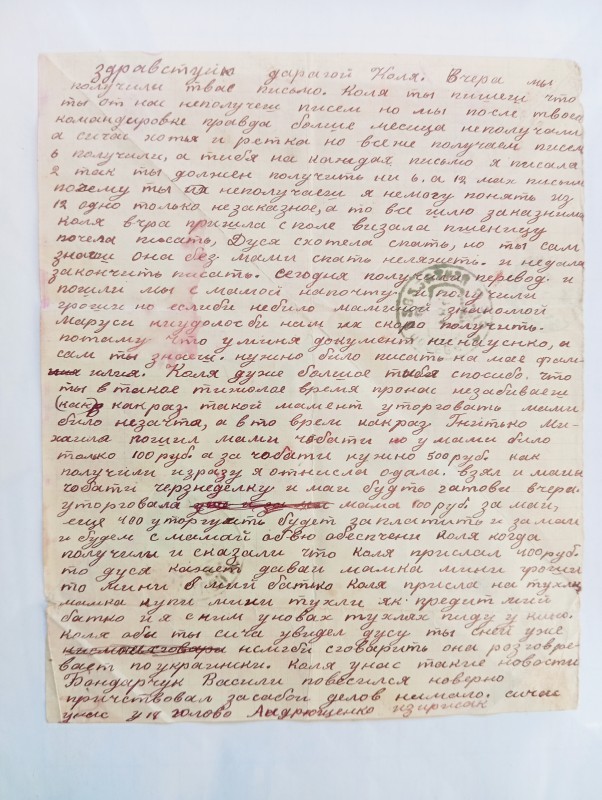 здравствуйю дарагой Коля. Вчера мы
получили твае письмо. Коля ты пишеш что
ты от нас неполучеш писем но мы после твоей
командировке правда болше месица неполучали
а сичас хотья и ретка но все же получаем писем
6 получили, а тибя на каждая письмо я писала
2 так ты должен получить ни 6. а 12 мая письма
почему ты неполучаеш я немогу понять из
12 одно только незаказное, а то все шлю заказними
Коля вчра пришла споле визала пшеницу
почела писать, Дуся схотела спать, но ты сам
знаеш она без мами спать неляжеть. и недала
закончить писать. Сегодня получила перевод. и
пошли мы с мамой напочту. и получили
гроши но еслиби небило маминой знакомой
Маруси ниудолосби нам их скоро получить.
потаму что уминя документ нинаусико, а
сам ты знаеш. нужно било писать на мае фам-
илия. Коля дуже болшое тибя спосибо. что
ты в такое тижолое время пронас незабиваеш
как раз. такой мамент уторговать мами
било незачта, а вто врем какраз Гнитько Ми-
хаила пошил мами чоботи но умами било
только 100 руб. а за чобати нужно 500 руб. как
получили изразу я отнисла одала. взял и маии
чобати черзнеделку и маи будть гатови вчера.
уторговала мама 100 руб за маи,
еще 400 уторгуить будет заплатить и за маи
и будем с мамай обвю обеспечени Коля когда
получили и сказали что Коля прислал 400 руб.
то дуся кажет даваи мамка мини гроши
то мини мий батько Коля присла на тухли
мамка купи мини тухли як предит мий
батко й я сним уновах тухлях пиду у кино.
Коля аби ты сича увидел дусу ты сней уже
немгби сговарить она розговри-
вает поукраински. Коля унас такие новости
Бондарчук Васили повесился наверно
причствовал засабой делов нимало. сичас
унас голово Андрющенко изирисак